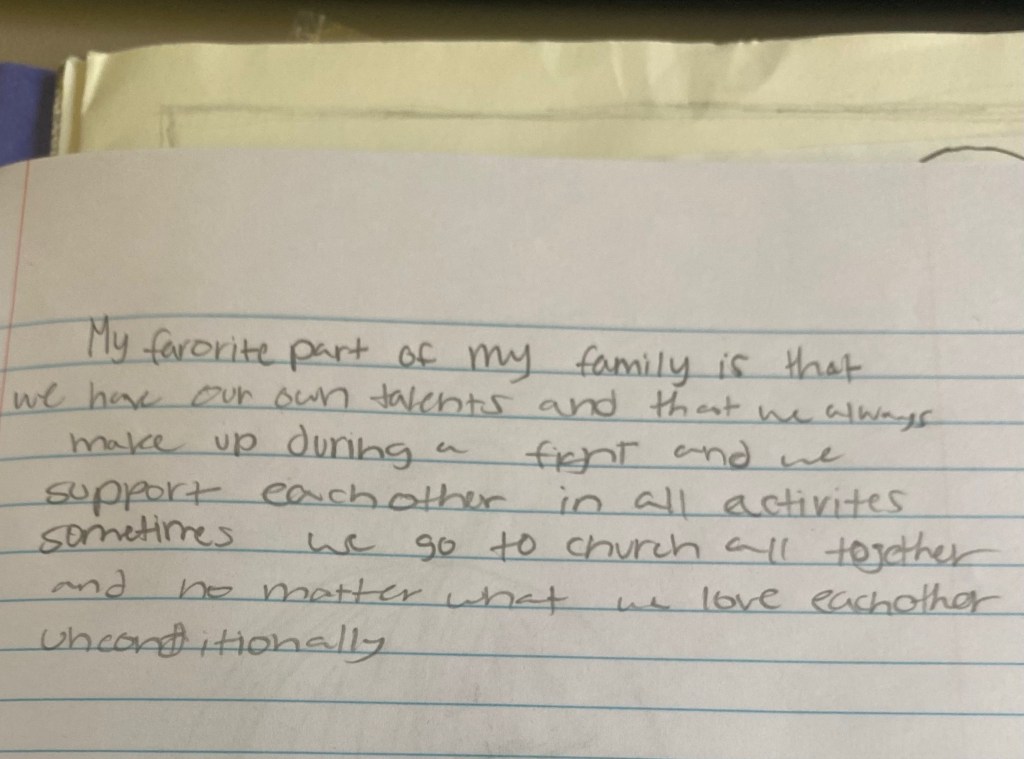 My favorite part of my family is that
we have our own talents and that we always
make up during a fight and we
support eachother in all activites
sometimes we go to church all together
and no matter what we love eachother
unconditionally